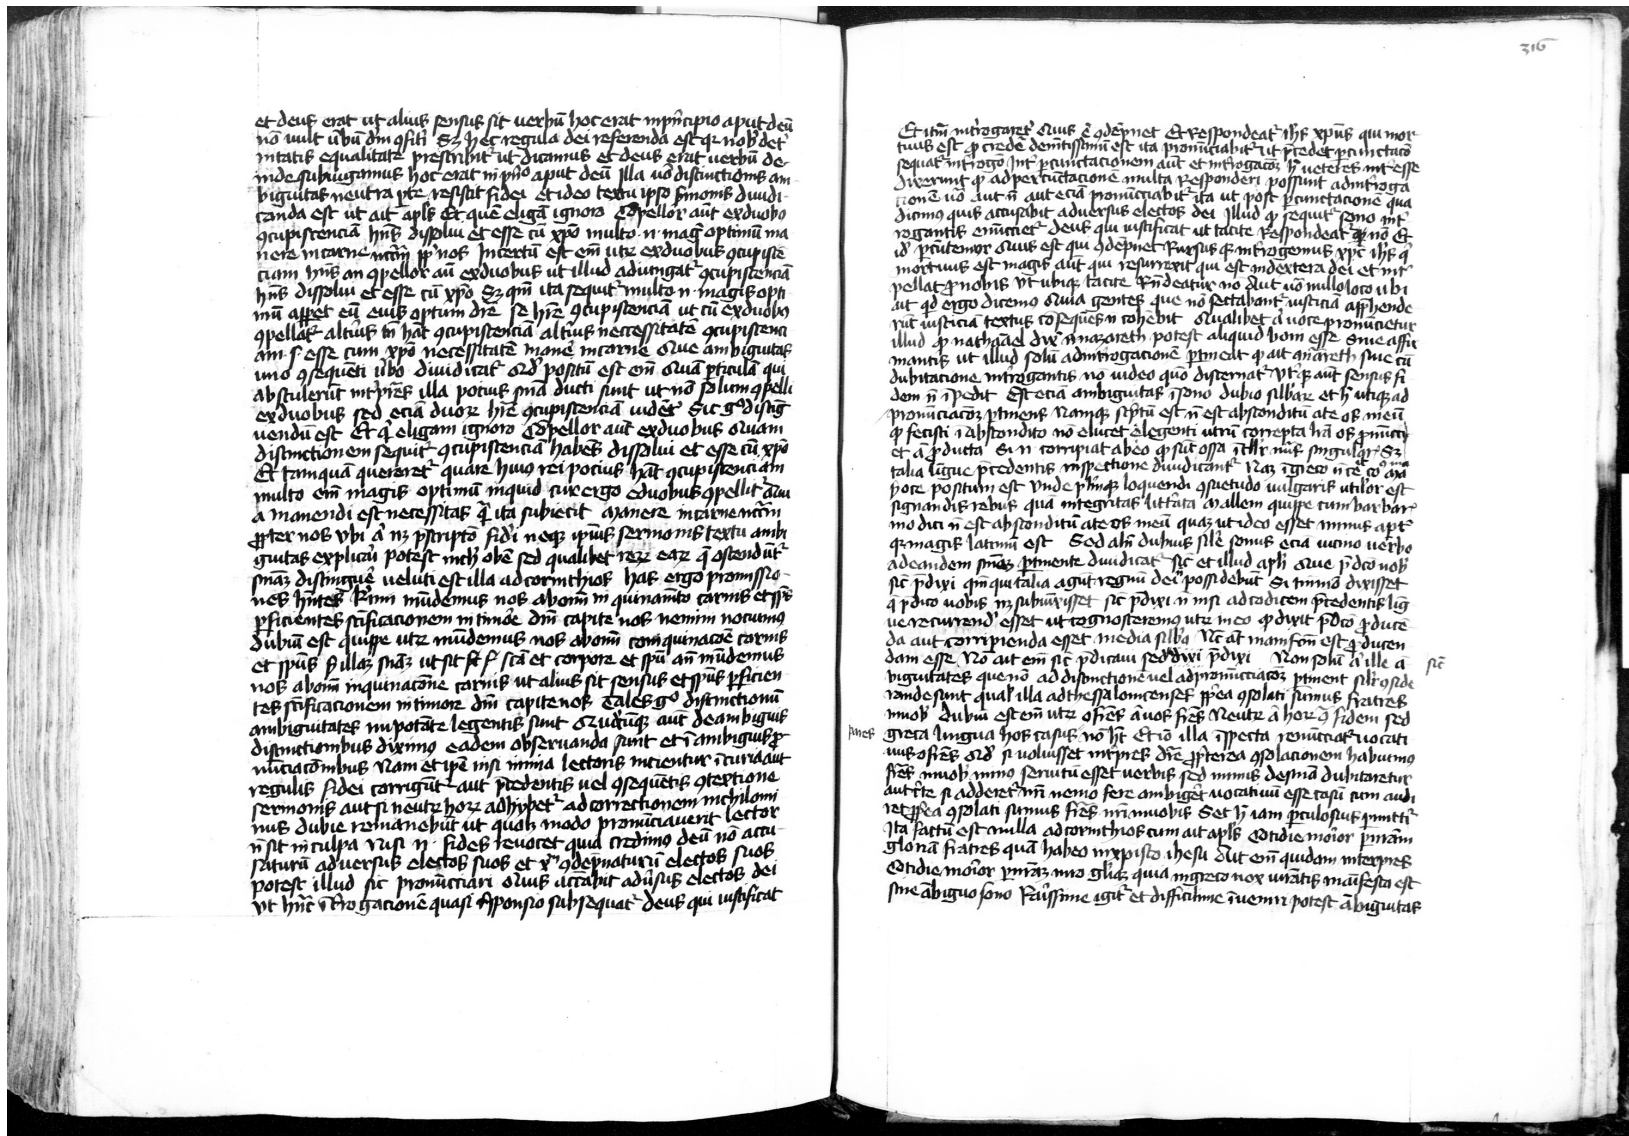 et deus erat ut alius sensus sit uerbũ hoc erat in pⁱncipio aput deũ
nõ uult ũbũ dm̃ ꝯfitⁱ Sꝫ hec regula dei referenda est qꝫ nobˢ det
initatis equalitate prescribitʳ ut dicamus et deus erat uerbũ de-
inde subiungamus hoc erat in pⁱnᵒ aput deũ Illa uõ distinctionis am
biguitas neutra ꝑte resistit fidei Et ideo textu ipso sermonis diudi-
canda est ut ait apłs Et quẽ eligã ignoro Cõpellor aũt ex duobꝰ
ꝯcupiscenciã hñs dissolui et esse cũ xp̃o multo .n. magˢ optimũ ma
nere in carne pp̃ nos Incertũ est em̃ utꝝ ex duobus ꝯcupiscẽ
ciam hñs an ꝯpellor aũ ex duobus ut illud adiungatʳ ꝯcupiscenciã
hñs dissolui et esse cũ xp̃o Sꝫ qm̃ ita sequitʳ multo .n. magis opti
mũ apparet eũ eius optimũ dic̃e se hr̃e ꝯcupiscenciã ut cũ ex duobꝰ
ꝯpellatʳ altⁱus tñ hãt ꝯcupiscenciã altⁱus neccessitatẽ ꝯcupiscenci
am .s. esse cum xp̃o necessitatẽ manẽ in carne Que ambiguitas
uno ꝯsequẽti ũbo diuidicatʳ qd̃ positũ est em̃ Quã ꝑticulã qui
abstulerũt intⁱp̃res illa pocius sm̃a ducti sunt ut nõ solum ꝯpelli
ex duobus sed eciã duoꝝ hr̃e ꝯcupiscenciã uidẽt Sic gᵒ disting̃
uendũ est Et qⁱ eligam ignoro Cõpellor aut̃ ex duobus Quam
distinctionem sequitʳ ꝯcupiscenciã habens dissolui et esse cũ xp̃o
Et tamquã quereretʳ quare huius rei pocius hãt ꝯcupiscenciam
multo em̃ magis optimũ inquid cur ergo e duobus ꝯpellitʳ
a manendi est necessitas q̃ ita subiecit Manere in carne
ꝓpter nos Ubi aũ nꝫ p̃scripto fidei neqꝫ ipius sermonis textu ambi
guitas explicaⁱ potest nich̃ obẽ sed qualibet reꝝ eaꝝ q̃ ostendũtʳ
sm̃aꝫ distinguẽ ueluti est illa ad corinthios has ergo promissio-
nes hñtes kⁱmi mũdemus nos ab om̃i in quinamẽto carnis et sp̃s
ꝑficientes sc̃ificacionem in timoẽ dñi capite nos nemini nocuimꝰ
dubiũ est quippe utꝝ mũdemus nos ab om̃i coinquinacõe carnis
et sp̃us s̃ illaꝫ sm̃aꝫ ut sit sc̃ã et corpore et sp̃u añ mũdemus
nos ab om̃i inquinacõne carnis ut alius sit sensus et sp̃us ꝑficien-
tes sc̃ificacionem in timore dñi capite nos Tales gᵒ distinctionũ
ambiguitates in potãte legentis sunt Quecũqꝫ aut̃ de ambiguis
distinctionibus diximꝰ eadem obseruanda sunt et ĩ ambiguis ꝓ
nũciacõnibus Nam et ipẽ nisi nimia lectoris uicientur ĩcuria aut
regulis fidei corrigũtʳ aut p̃cedentis uel ꝯsequẽtis ꝯtextione
sermonis aut si neutꝝ hoꝝ adhybetʳ ad correctionem nichilomi
nus dubie remanebũt ut quolꝫ modo pronũciauerit lector
ñ sit in culpa Nisi .n. fides reuocet quia credimꝰ deũ nõ accu-
saturũ aduersus electos suos et xᵐ ꝯdẽpnaturũ electos suos
potest illud sic pronũcciari Quis accũabit adũsus electos dei
Ut hñc ĩtⁱrogacionẽ quasi rñponsio subsequatʳ deus qui iustificat
316
Et itm̃ intⁱrogaretʳ Quis ẽ ꝯdẽpnet Et respondeatʳ ihs̃ xp̃us qui mor
tuus est qᵈ credẽ dem̃tissimũ est ita pronũciabitʳ ut p̃cedet ꝑcunctacõ
sequatʳ intⁱrogõ Intⁱ ꝑcunctacionem aut̃ et intⁱrogacõꝫ hᶜ ueteres int̃esse
dixerunt qᵈ ad percũctacionẽ multa responderi possunt ad intⁱroga
cionẽ uõ aut ñ aut eciam pronũcciabitʳ ita ut post ꝑcunctacionẽ qua
dicimus quis accusabit aduersus electos dei Illud qᵈ sequitʳ sono intⁱ
rogantis enũccietʳ deus qui iustificat ut tacite respondeatʳ nõ Et
idᵉ ꝑcũtemor Quis est qui ꝯdẽpnet Rursus qꝫ intⁱrogemus xp̃c ihs̃ qⁱ
mortuus est magis aut̃ qui resurrexit qui est in dextera dei et intⁱ
pellat ꝓ nobis Ut ubiqꝫ tacite rñdeatur nõ Aut uõ in illo loco ubi
ait qᵈ ergo dicemꝰ Quia gentes que nõ sectabantʳ iusticiã app̃hende
rũt iusticiã textus cõsequẽs ñ cohebit Qualibet aũ uoce pronũcietur
illud qᵈ nathãael dixⁱ a nazareth potest aliquid boni esse Siue affⁱ
mantis ut illud solũ ad intⁱrogacionẽ ꝑtineat qᵈ ait a nãreth siue cũ
dubitacione intⁱrogantis nõ uideo quõ discernatʳ Utⁱqꝫ aut̃ sensus fi
dem ñ ĩpedit Est eciã ambiguitas ĩ sono dubio silbaꝝ et hᶜ utiqꝫ ad
pronũciacõꝫ ꝑtinens Namqꝫ scⁱptũ est ñ est absconditũ a te os meũ
qᵈ fecisti ĩ abscondito nõ elucet elegenti utrũ correpta lrã os ꝓnũcciꝫ
et ã ꝓducta Si .n. corripiat ab eo qᵈ sũt ossa ĩtellⁱʳ nũs singularⁱ Sꝫ
talia lingue p̃cedentis inspectione diudicantʳ Naꝫ ĩ greco
hoce positum est Unde pˡⁱuqꝫ loquendi ꝯsuetudo uulgaris utilior est
signandis rebus quã integritas litt̃ata Mallem quippe cum barbarⁱ
mo dici ñ est absconditũ a te os meũ quaꝫ ut ideo esset minus aptⁱ
qꝫ magis latinũ est Sed alñ dubius silⁱe sonus eciã uicino uerbo
ad eandem sm̃aꝫ ꝑtinente diudicatʳ sic̃ est illud apłi Que p̃dco uobˢ
sic̃ p̃dixi qm̃ qui talia agũt regnũ dei possidebũt Si tmmõ dixisset
q̃ p̃dico uobis nꝫ subiũxisset sic̃ p̃dixi ñ nisi ad codicem p̃cedentis lig̃
ue recurrendᵉ esset ut cognosceremꝰ utꝝ in eo qᵈ dixit p̃dcõ ꝓducẽ
da aut corripienda esset media silbꝰ Nc̃ at̃ manifm̃ est ꝓducen
dam esse Nõ ait em̃ sic̃ p̃dicaui sed sic̃ dixi p̃dixi Non solũ aũ ille ã
biguitates que nõ ad disĩctionẽ uel ad pronũcciacõꝫ ꝑtinent silⁱr ꝯside
rande sunt qualⁱ illa ad thessalonicenses pp̃ea ꝯsolati sumus fratres
in uobˢ Dubiũ est em̃ utꝝ o frẽs ã uos frẽs Neutꝝ ã hoꝝ ꝯᵃ fidem sed
greca lingua hos casus nõ hᶜt Et iõ illa ĩspecta renũcciatʳ uocati
uus o frẽs Qd̃ si uoluisset intⁱp̃res dic̃e ꝓpterea ꝯsolacionem habuimꝰ
frẽs in uobˢ minꝰ seruitũ esset uerbis sed minus de sm̃a dubitaretur
aut c̃te si adderetʳ nr̃i nemo fere ambigẽt uocatiuũ esse casũ cum audi
ret ꝓptea ꝯsolati sumus frẽs nr̃i in uobis Set hᶜ iam ꝑiculosius ꝑmittitʳ
Ita factũ est in illa ad corinthios cum ait apłs Cotidie moⁱor ꝑ nr̃am
gloriã fratres quã habeo in xpisto ihesu Ait em̃ quidam interp̃res
Cotidie moⁱor ꝑ nr̃aꝫ iuro glⁱaꝫ quia in greco uox iurãtis mãifesta est
sine ãbiguo sono Rarⁱssime igitʳ et difficilime ĩueniri potest ãbiguitas
sic̃